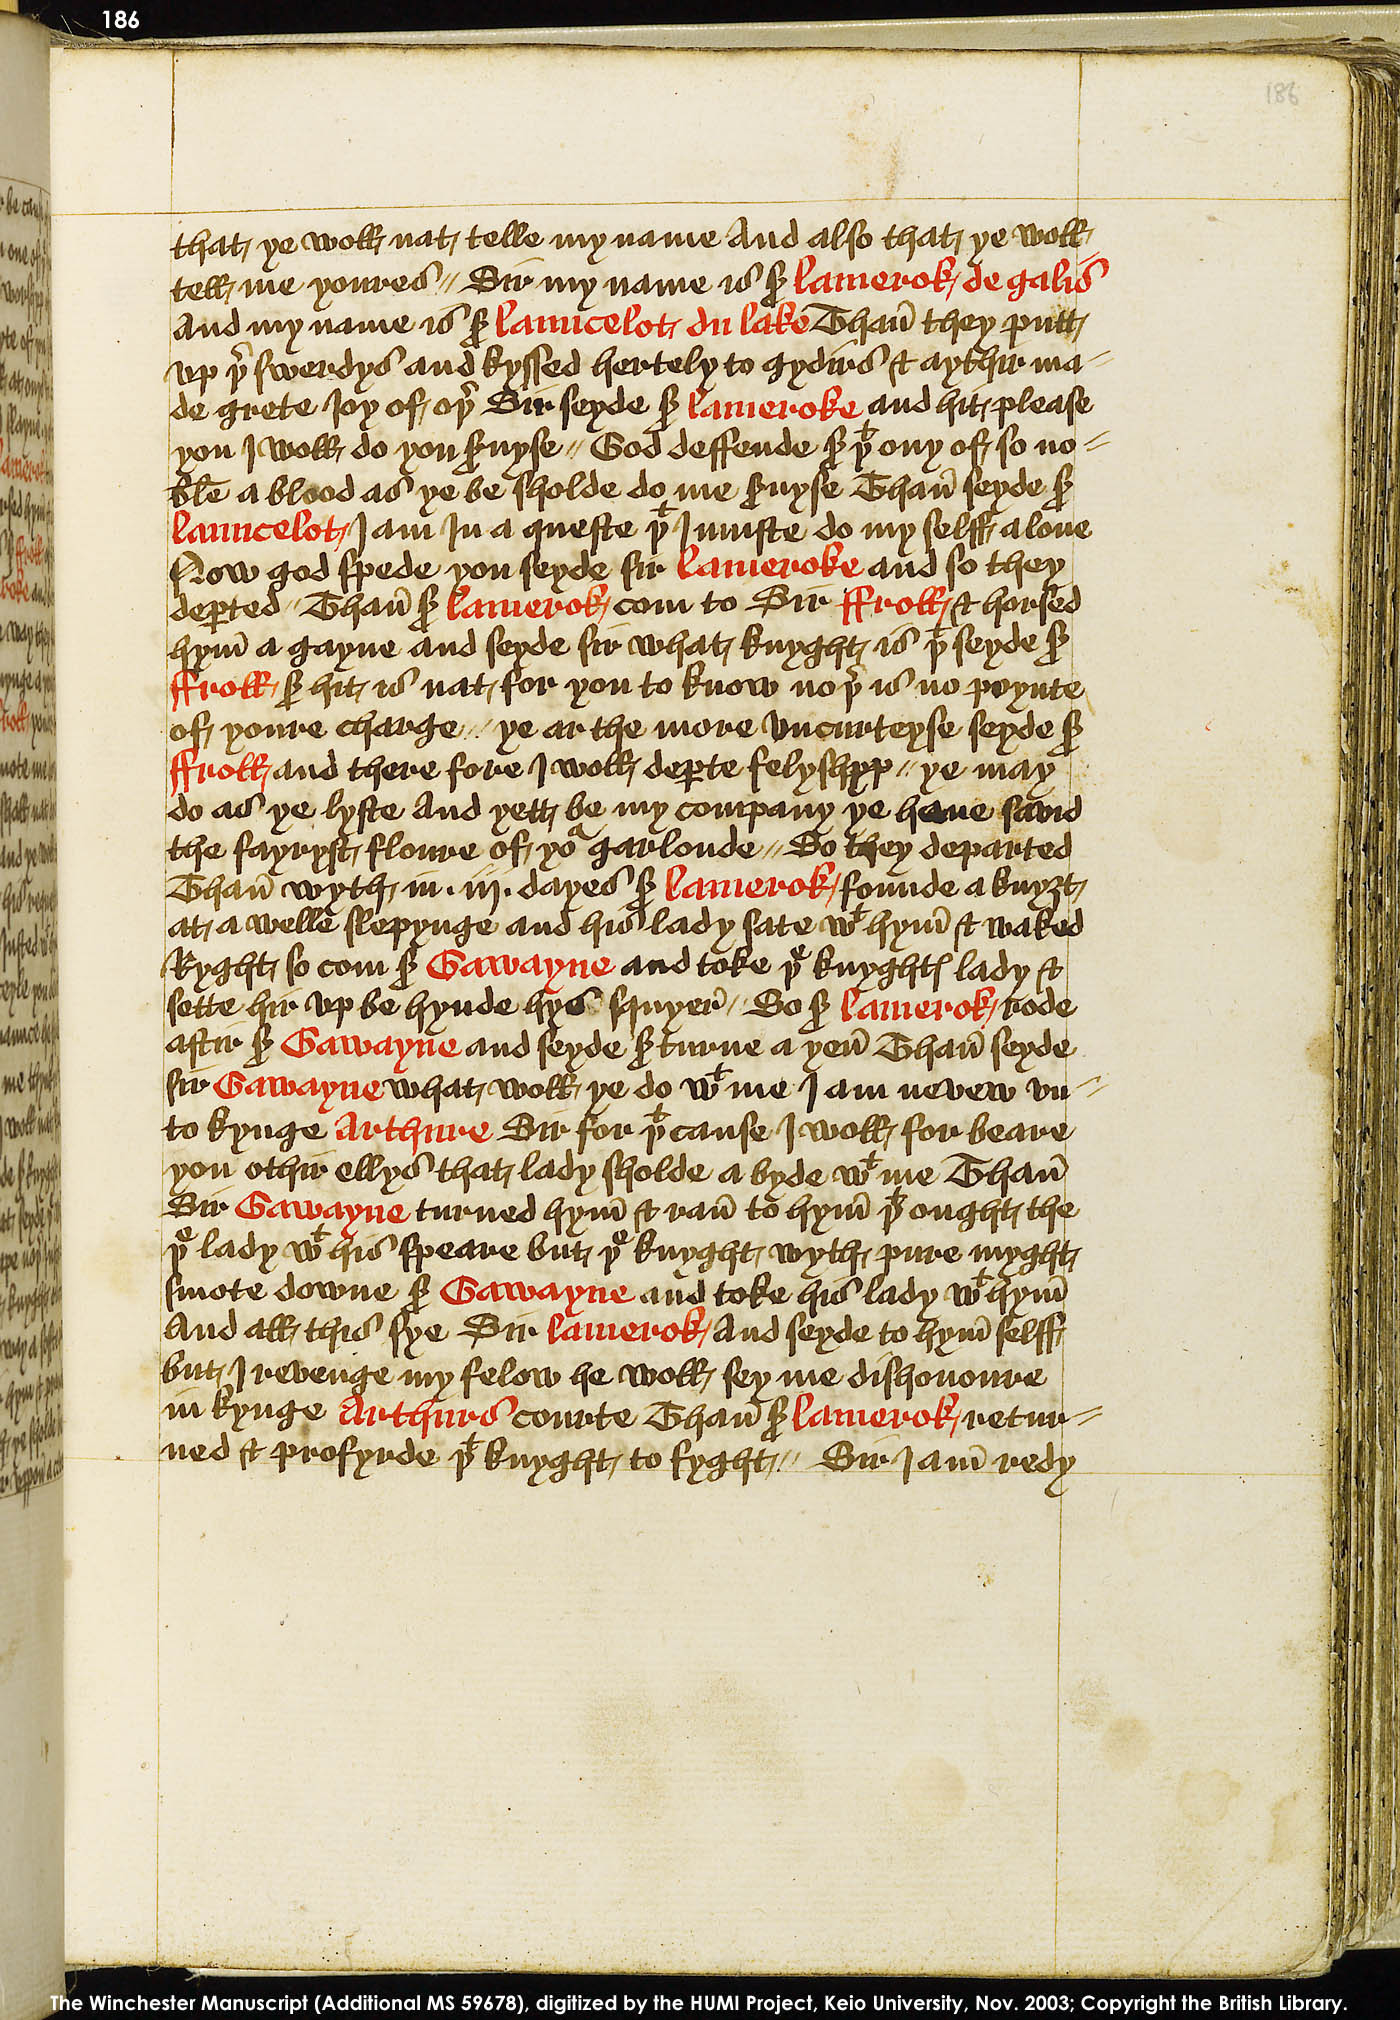 186
186
that ye woll nat telle my name And also that ye woll
tell me youres // Sir my name is sˀ Lamerok de galis
And my name is sˀ Launcelot du lake Thañ they putt
vp þr̉ swerdys and kyssed hertely to gydirs & aythir ma-
de grete Joy of oþr̉ Sir seyde sˀ Lameroke and hit please
you I woll do you sˀuyse // God deffende sˀ þt ony of so no=
blē a blood as ye be sholde do me sˀuyse Thañ seyde sˀ
Launcelot I am In a queste þt I muste do my selff alone
Now god spede you seyde sir Lameroke and so they
deꝑted // Thañ sˀ Lamerok com to Sir Froll & horsed
hym̄ a gayne and seyde sir what knyght is þt seyde sˀ
Froll sˀ hit is nat for you to know noþr̉ is no poynte
of youre charge // ye ar the more vncurteyse seyde sˀ
Froll and there fore I woll deꝑte felyshyp // ye may
do as ye lyste And yett be my company ye haue savid
the fayryst floure of yoᵃ garlonde // So they departed
Thañ wyth in .iij. dayes sˀ Lamerok founde a knyȝt
at a welle slepynge and his lady sate wt hym̄ & waked
Ryght so com sˀ Gawayne and toke þe knyghtꝭ lady &
sette hir vp be hynde hys squyer̉ // So sˀ Lamerok rode
aftir sˀ Gawayne and seyde sˀ turne a yen̄ Thañ seyde
sir Gawayne what woll ye do wt me I am nevew vn=
to kynge Arthure Sir for þt cause I woll for beare
you othir ellys that lady sholde a byde wt me Thañ
Sir Gawayne turned hym̄ & rañ to hym̄ þt ought the
þe lady wt his speare but þe knyght wyth pure myght
smote downe sˀ Gawayne and toke his lady wt hym̄
And all this sye Sir Lamerok And seyde to hym̄ selff
but I revenge my felow he woll sey me dishonoure
in kynge Arthurs courte Thañ sˀ Lamerok retur=
ned & profyrde þt knyght to fyght // Sir I am̄ redy
The Winchester Manuscript (Additional MS 59678), digitized by the HUMI Project, Keio University, Nov. 2003; Copyright the British Library.